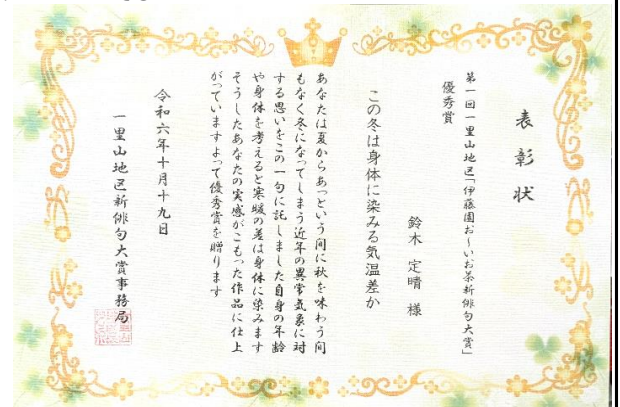 表彰状
第一回一里山地区「伊藤園お～いお茶新俳句大賞」
優秀賞
鈴木 定晴 様
この冬は身体に染みる気温差か
あなたは夏からあっという間に秋を味わう間
もなく冬になってしまう近年の異常気象に対
する思いをこの一句に託しました自身の年齢
や身体を考えると寒暖の差は身体に染みます
そうしたあなたの実感がこもった作品に仕上
がっていますよって優秀賞を贈ります
令和六年十月十九日
一里山地区新俳句大賞事務局